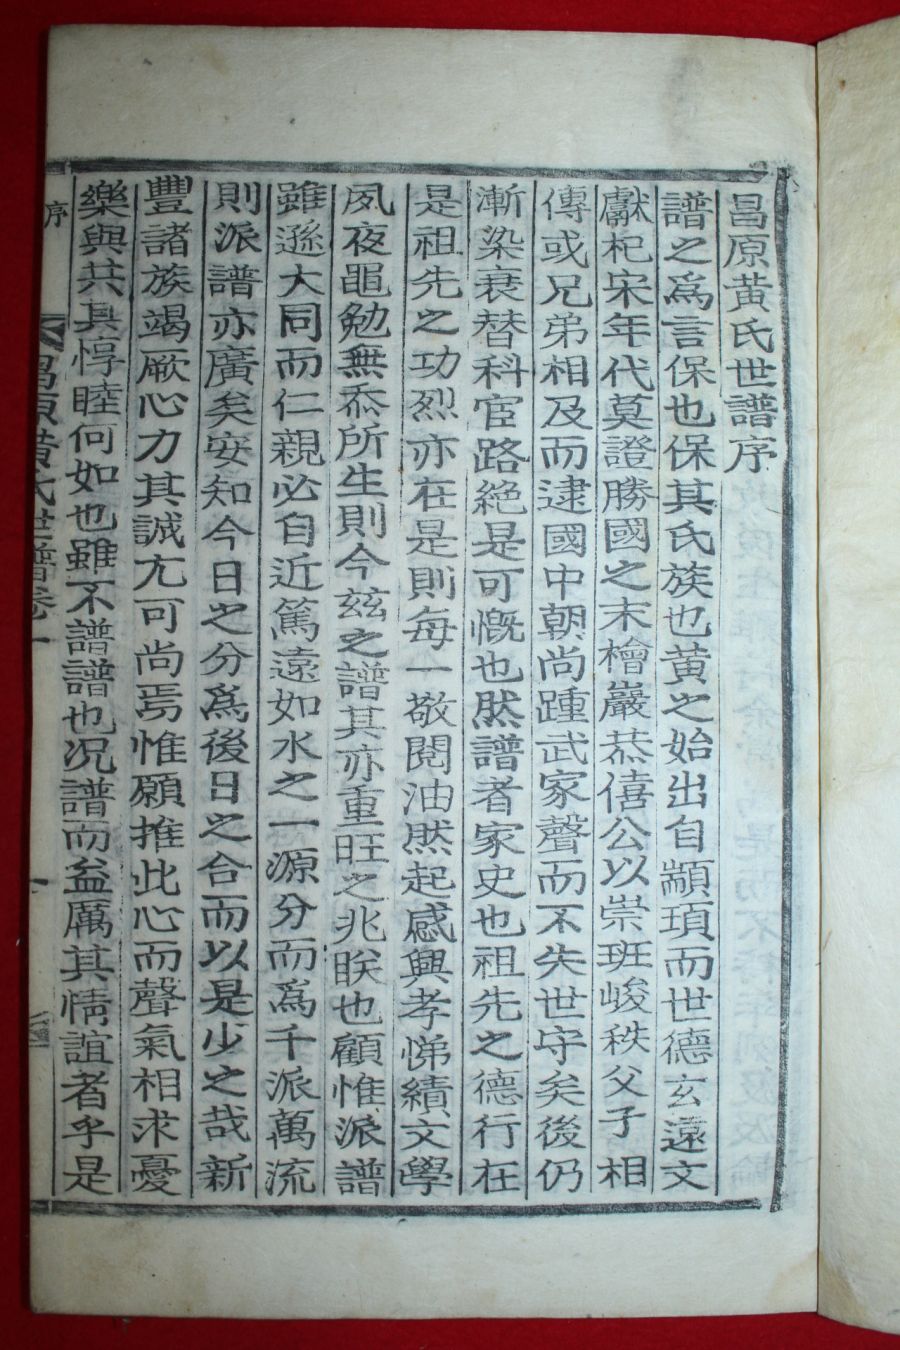 昌原黃氏世譜序
譜之爲言保也保其氏族也黃之始出自顓頊而世德玄遠文
獻杞宋年代莫證勝國之末檜巖恭僖公以崇班峻秩父子相
傳或兄弟相及而逮國中朝尚踵武家聲而不失世守矣後仍
漸染衰替科宦路絶是可慨也然譜者家史也祖先之德行在
是祖先之功烈亦在是則每一敬閱油然起感興孝悌績文學
夙夜黽勉無忝所生則今玆之譜其亦重旺之兆眹也顧惟派譜
雖遜大同而仁親必自近篤遠如水之一源分而爲千派萬流
則派譜亦廣矣安知今日之分爲後日之合而以是少之哉新
豐諸族竭厥心力其誠尤可尚焉惟願推此心而聲氣相求憂
樂與共其惇睦何如也雖不譜譜也况譜而益厲其情誼者乎是
序
昌原黃氏世譜卷一